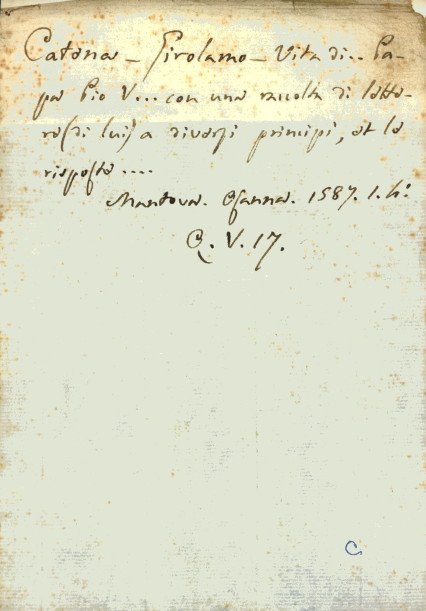 Catena - Girolamo - Vita di... Pa-
pa Pio V... con una raccolta di lette-
re (di lui) a diversi principi, et le
risposte ....
Mantova. Osanna. 1587. 1. 4:
Q. V. 17.
C